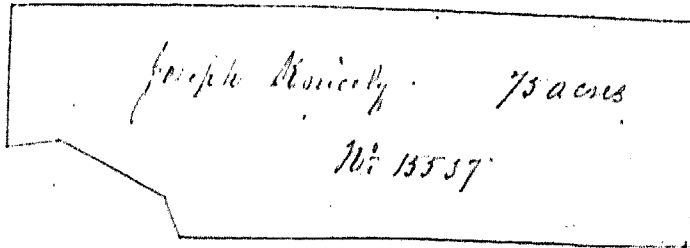 Joseph Knicely. 75 acres
No: 15537